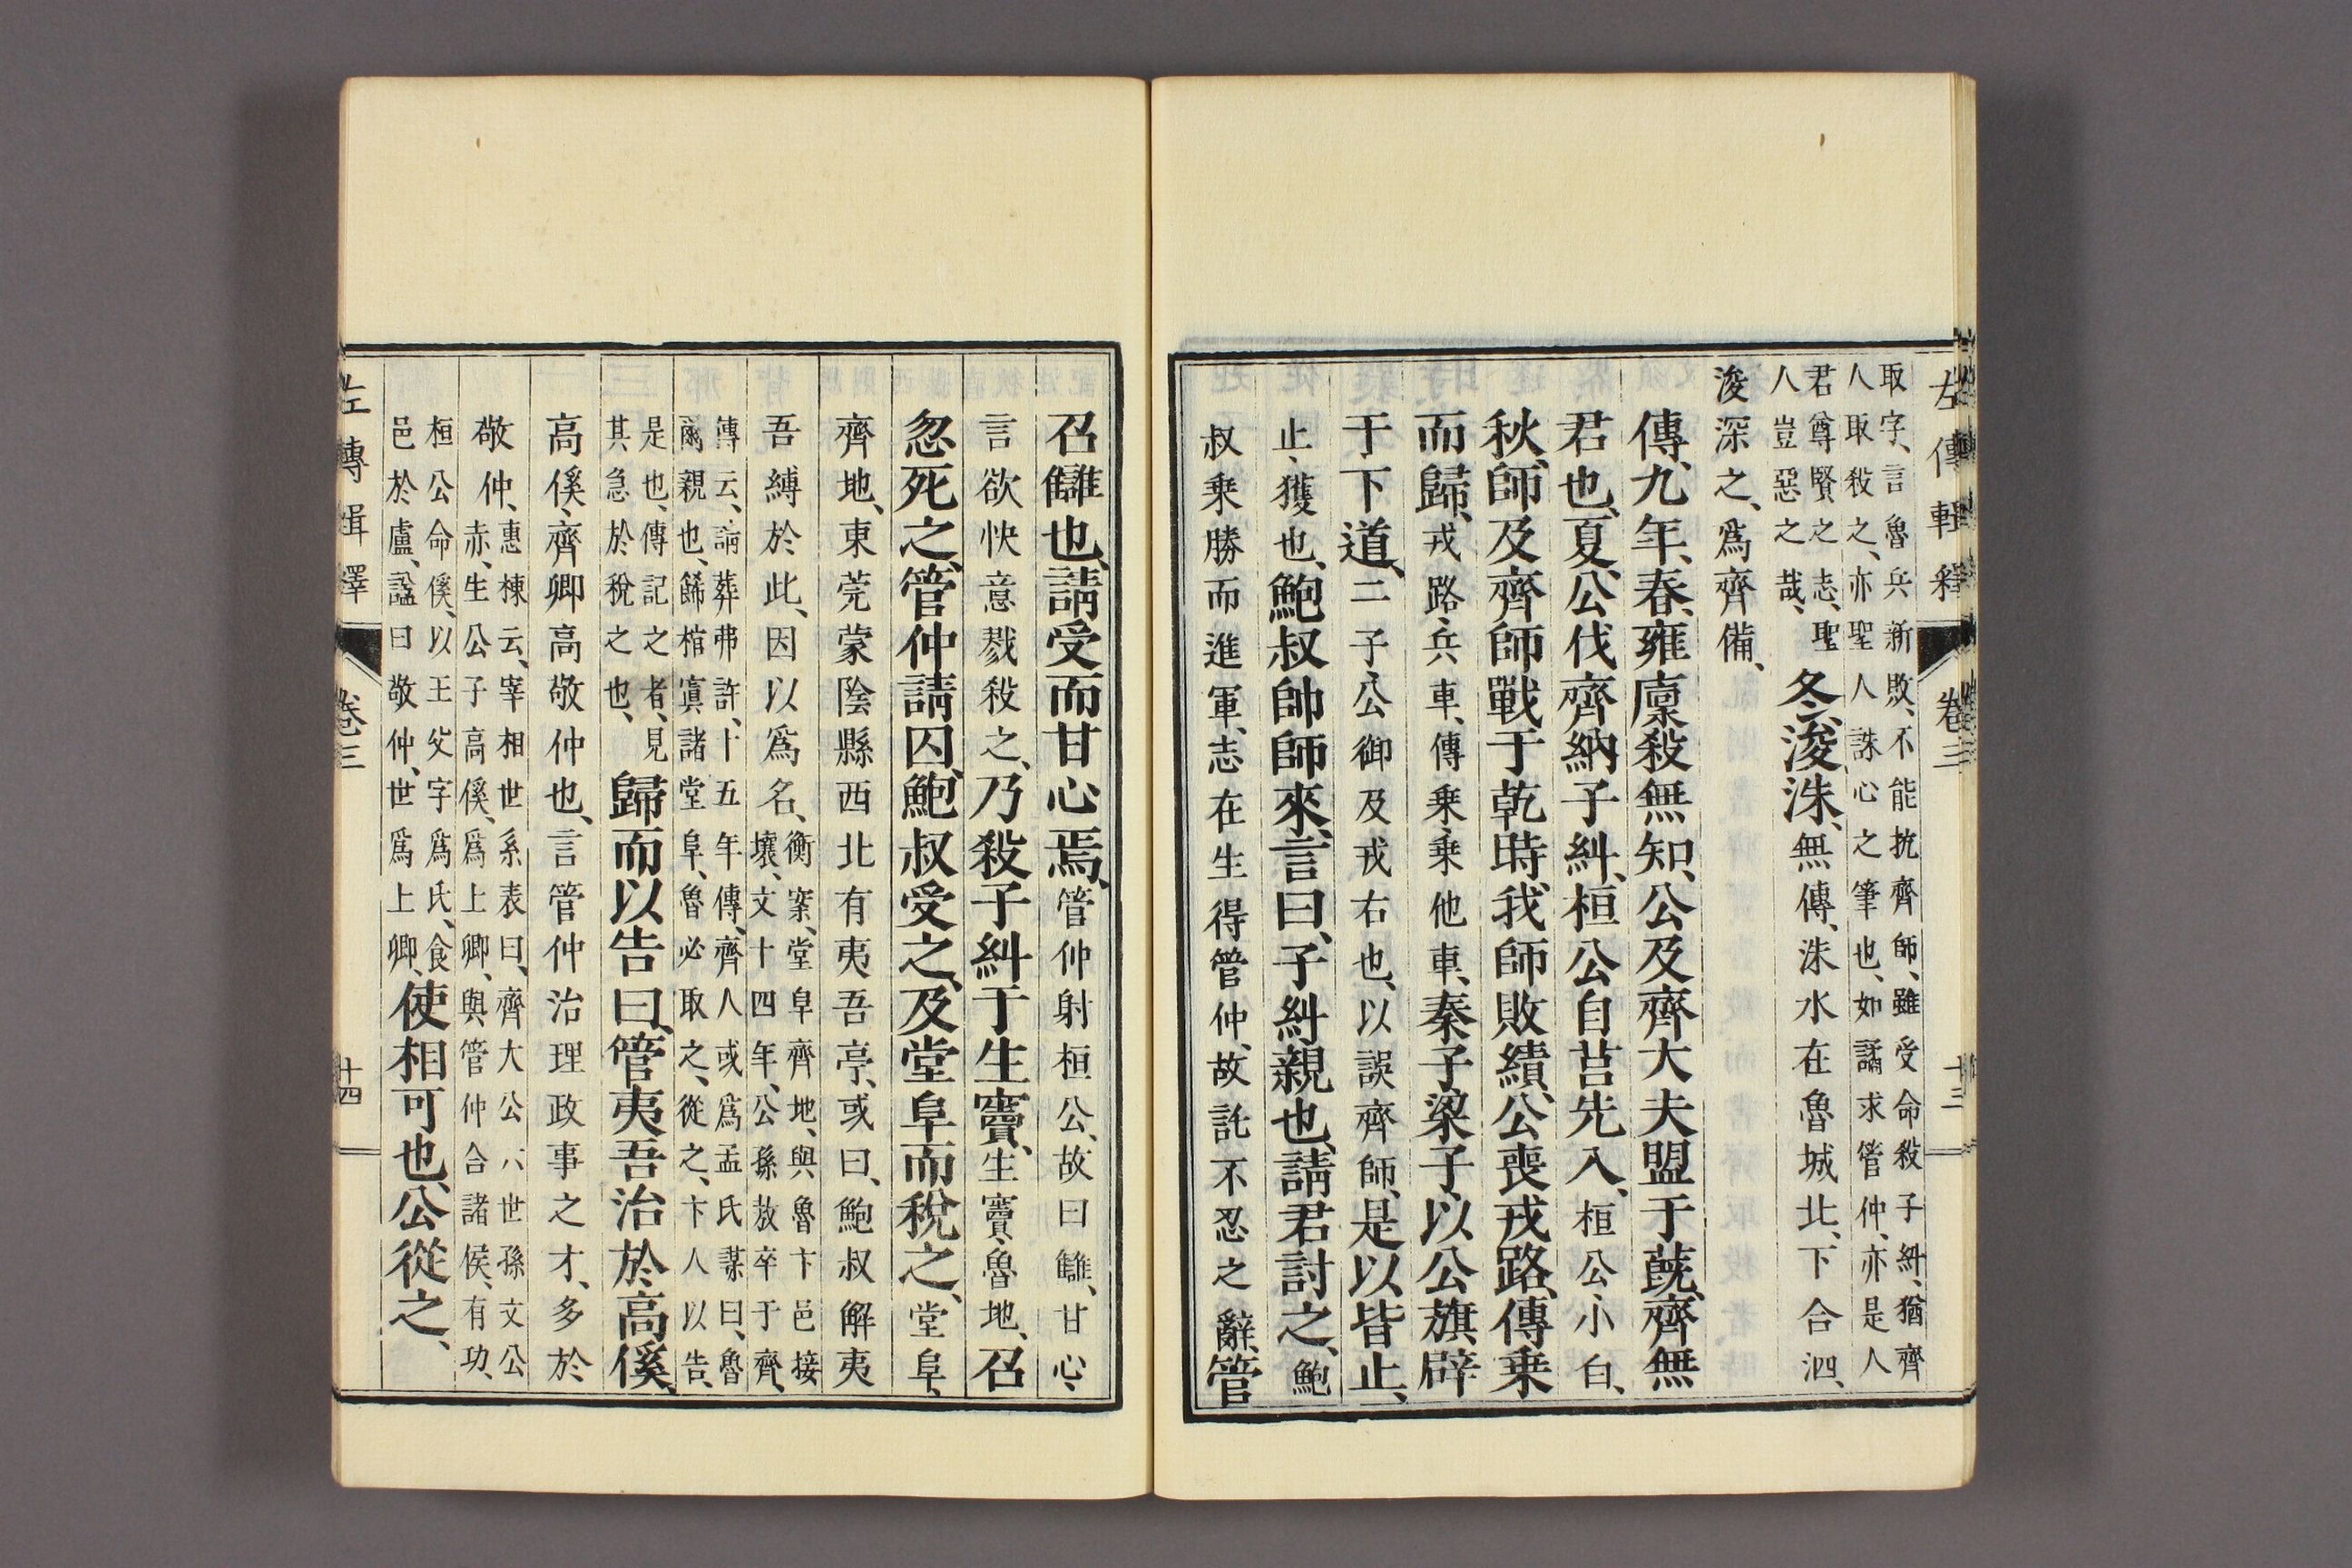 左傳輯釋
卷三
十三
取字、言魯兵新敗、不能抗齊師、雖受命殺子糾、猶齊
人取殺之、亦聖人誅心之筆也、如譎求管仲、亦是人
君尊賢之志、聖
人豈惡之哉、
冬、浚洙、無傳、洙水在魯城北、下合泗、
浚深之、爲齊備、
傳、九年、春、雍廩殺無知、公及齊大夫盟于蔇、齊無
君也、夏、公伐齊納子糾、桓公自莒先入、桓公、小白、
秋、師及齊師戰于乾時、我師敗績、公喪戎路、傳乗
而歸、戎路、兵車、傳乗、乗他車、秦子梁子、以公旗辟
于下道、二子、公御及戎右也、以誤齊師、是以皆止、
止、獲也、鮑叔帥師來、言曰、子糾親也、請君討之、鮑
叔乗勝而進軍、志在生得管仲、故託不忍之辭、管
召讎也、請受而甘心焉、管仲射桓公、故曰讎、甘心、
言欲快意戮殺之、乃殺子糾于生竇、生竇、魯地、召
忽死之、管仲請囚、鮑叔受之、及堂阜而稅之、堂阜、
齊地、東莞蒙陰縣西北有夷吾亭、或曰、鮑叔解夷
吾縛於此、因以爲名、
衡案、堂阜齊地、與魯卞邑接
壤、文十四年、公孫敖卒于齊、
傳云、請葬弗許、十五年傳、齊人或爲孟氏謀曰、魯
爾親也、飾棺寘諸堂阜、魯必取之、從之、卞人以告、
是也、傳記之者、見
其急於稅之也、
歸而以告曰、管夷吾治於高傒、
高傒、齊卿高敬仲也、言管仲治理政事之才、多於
敬仲、
惠棟云、宰相世系表曰、齊大公六世孫文公
赤、生公子高傒、爲上卿、與管仲合諸侯、有功、
桓公命傒、以王父字爲氏、食
邑於盧、諡曰敬仲、世爲上卿、
使相可也、公從之、
左傳輯釋
卷三
十四